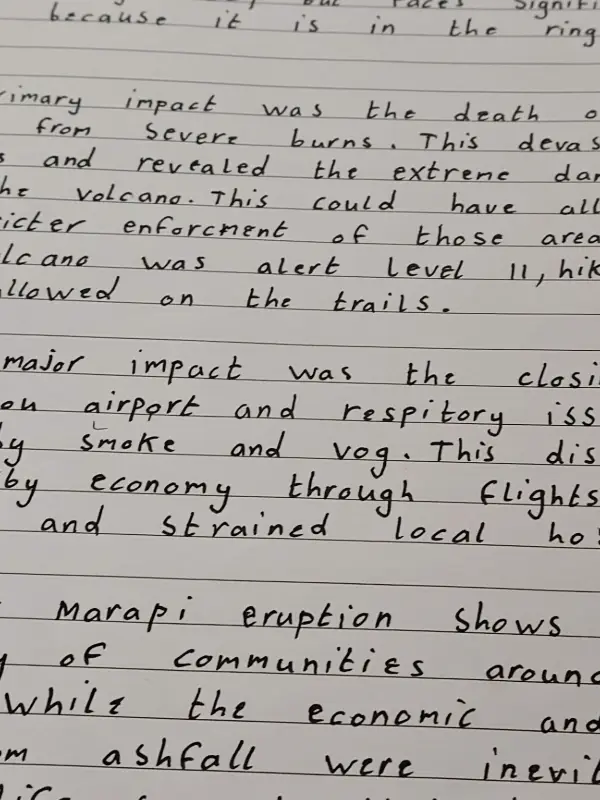 but faces signifi
because it is in the ring
rimary impact was the death o
from severe burns. This devas
s and revealed the extreme dan
he volcano. This could have all
icter enforcment of those area
lcano was alert level 11, hik
llowed on the trails.
major impact was the closi
on airport and respitory iss
by smoke and vog. This dis
by economy through flights
and strained local hos
Marapi eruption shows
y of communities around
while the economic and
om ashfall were inevit